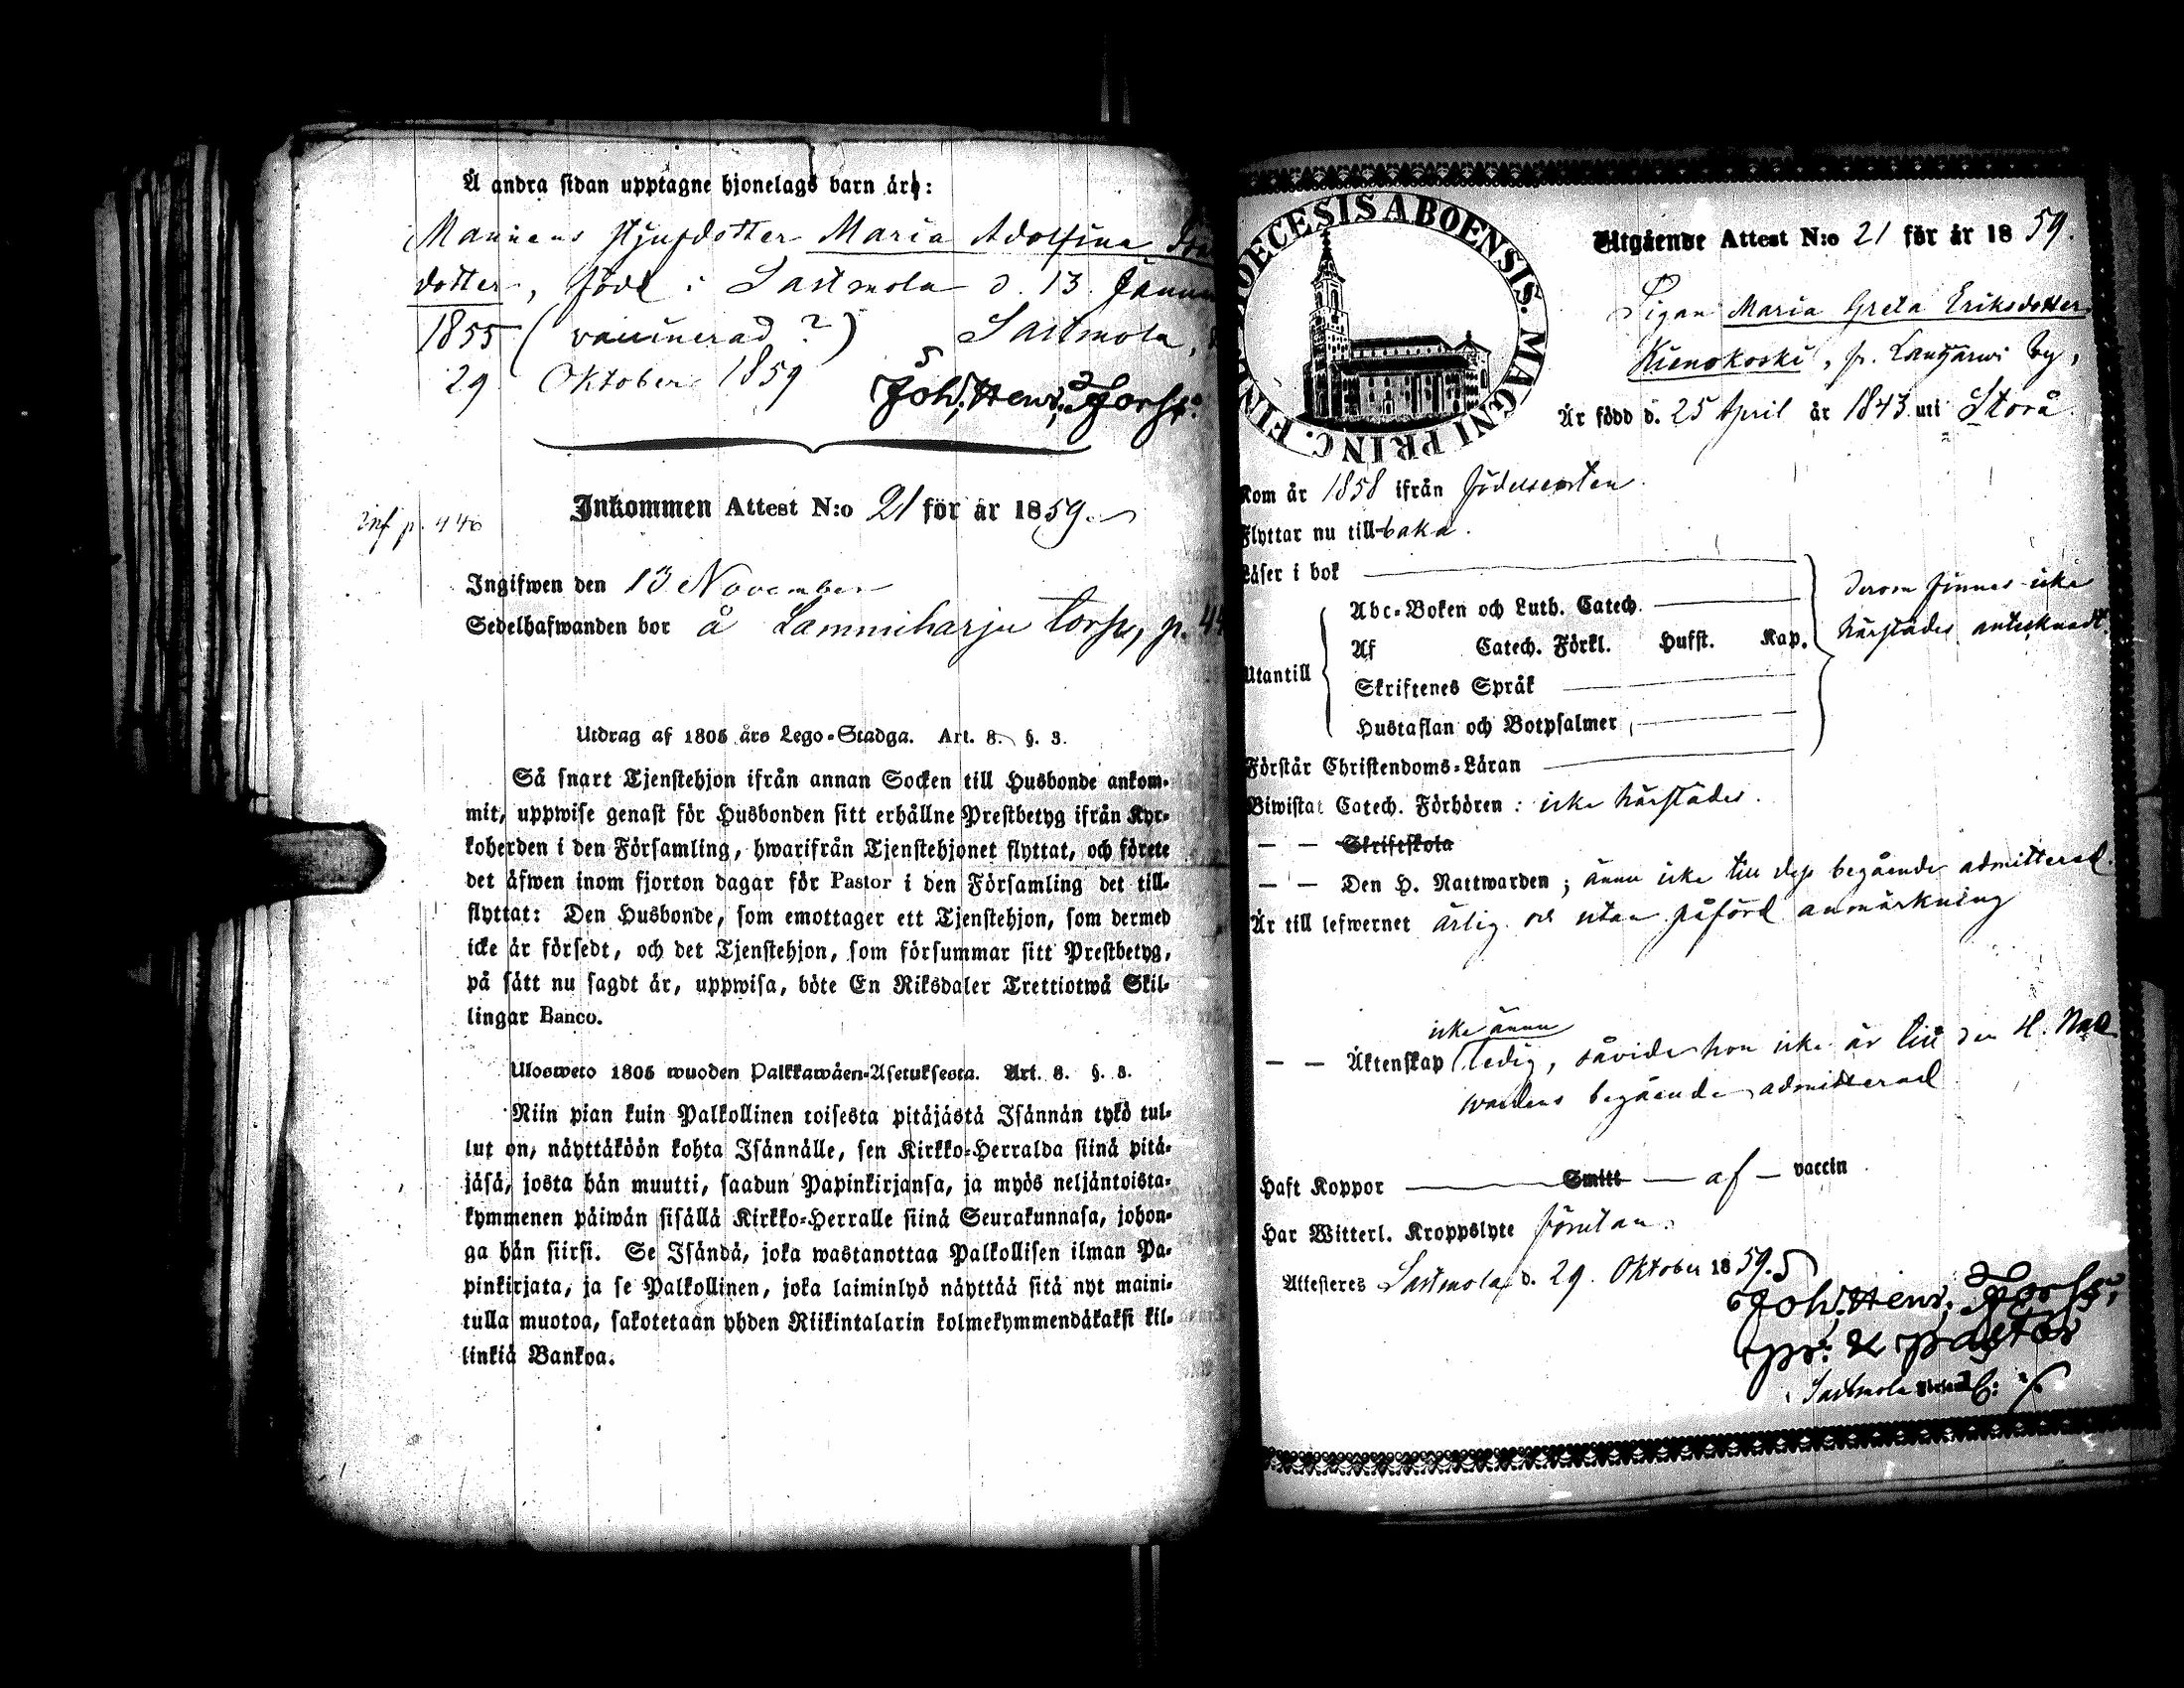 Å andra sidan upptagne hjonelags barn äro:
Mannens styfdotter Maria Adolfina
dotter, född i Sastmola d. 13 Janua
1855 (vaccinerad ?) Sastmola,
29 Oktober 1859 Joh. Henr. Forss.
Inkommen Attest N:o 21 för år 1859.
Inf p. 440
Ingifwen den 13 November
Sedelhafwanden bor å Lamminharju torp, p. 44
Utdrag af 1805 års Lego-Stadga. Art. 8. §. 3.
Så snart Tjenstehjon ifrån annan Socken till Husbonde ankom-
mit, uppwise genast för Husbonden sitt erhållne Prestbetyg ifrån Kyr-
koherden i den Församling, hwarifrån Tjenstehjonet flyttat, och förete
det äfwen inom fjorton dagar för Pastor i den Församling det till-
flyttat: Den Husbonde, som emottager ett Tjenstehjon, som dermed
icke är försedt, och det Tjenstehjon, som försummar sitt Prestbetyg,
på sätt nu sagdt är, uppwisa, böte En Riksdaler Trettiotwå Skil-
lingar Banco.
Ulosweto 1805 wuoden Palkkawäen-Asetuksesta. Art. 8. §. 3.
Niin pian kuin Palkollinen toisesta pitäjästä Isännän tykö tul-
lut on, näyttäköön kohta Isännälle, sen Kirkko-Herralda siinä pitä-
jäsä, josta hän muutti, saadun Papinkirjansa, ja myös neljäntoista-
kymmenen päiwän sisällä Kirkko-Herralle siinä Seurakunnasa, johon-
ga hän siirsi. Se Isändä, joka wastanottaa Palkollisen ilman Pa-
pinkirjata, ja se Palkollinen, joka laiminlyö näyttää sitä nyt maini-
tulla muotoa, sakotetaan yhden Riikintalarin kolmekymmendäkaksi kil-
linkiä Bankoa.
DIOECESIS ABOENSIS. MAGNI PRINC. FINL.
Utgående Attest N:o 21 för år 1859.
Pigan Maria Greta Eriksdotter
Kienokoski, fr. Lankjärwi by,
Är född d. 25 April år 1843 uti Storå
Kom år 1858 ifrån födelseorten.
Flyttar nu till-baka.
Läser i bok
Abc-Boken och Luth. Catech. derom finnes icke
Af Catech. Förkl. Hufst. Kap. härstädes antecknadt.
Utantill
Skriftenes Språk
Hustaflan och Botpsalmer
Förstår Christendoms-Läran
Biwistat Catech. Förhören: icke härstädes.
— — Skriftskola
— — Den H. Nattwarden; ännu icke till dess begående admitterad.
Är till lefwernet ärlig och utan påförd anmärkning
icke ännu
— — Äktenskap ledig, såvida hon icke är till den H. Natt
wardens begående admitterad
Haft Koppor Smitt — af — vaccin
Har Witterl. Kroppslyte förutan.
Attesteras Sastmola d. 29. Oktober 1859.
Joh. Henr. Forss,
pr: & pastor
Sastmola